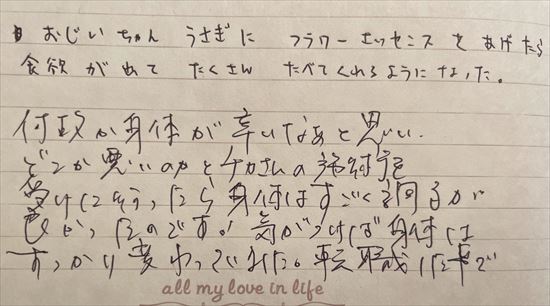 おじいちゃん うさぎに フラワーエッセンスを あげたら
食欲がでて たくさん たべてくれるようになった。
何故か身体が辛いなあと思い、
どこか悪いのかとチカさんの
受けにそう、たら身体はすごく調子が
良かったのです! 気がつけば身体は
すっかり変わっていました。転職した事で
all my love in life